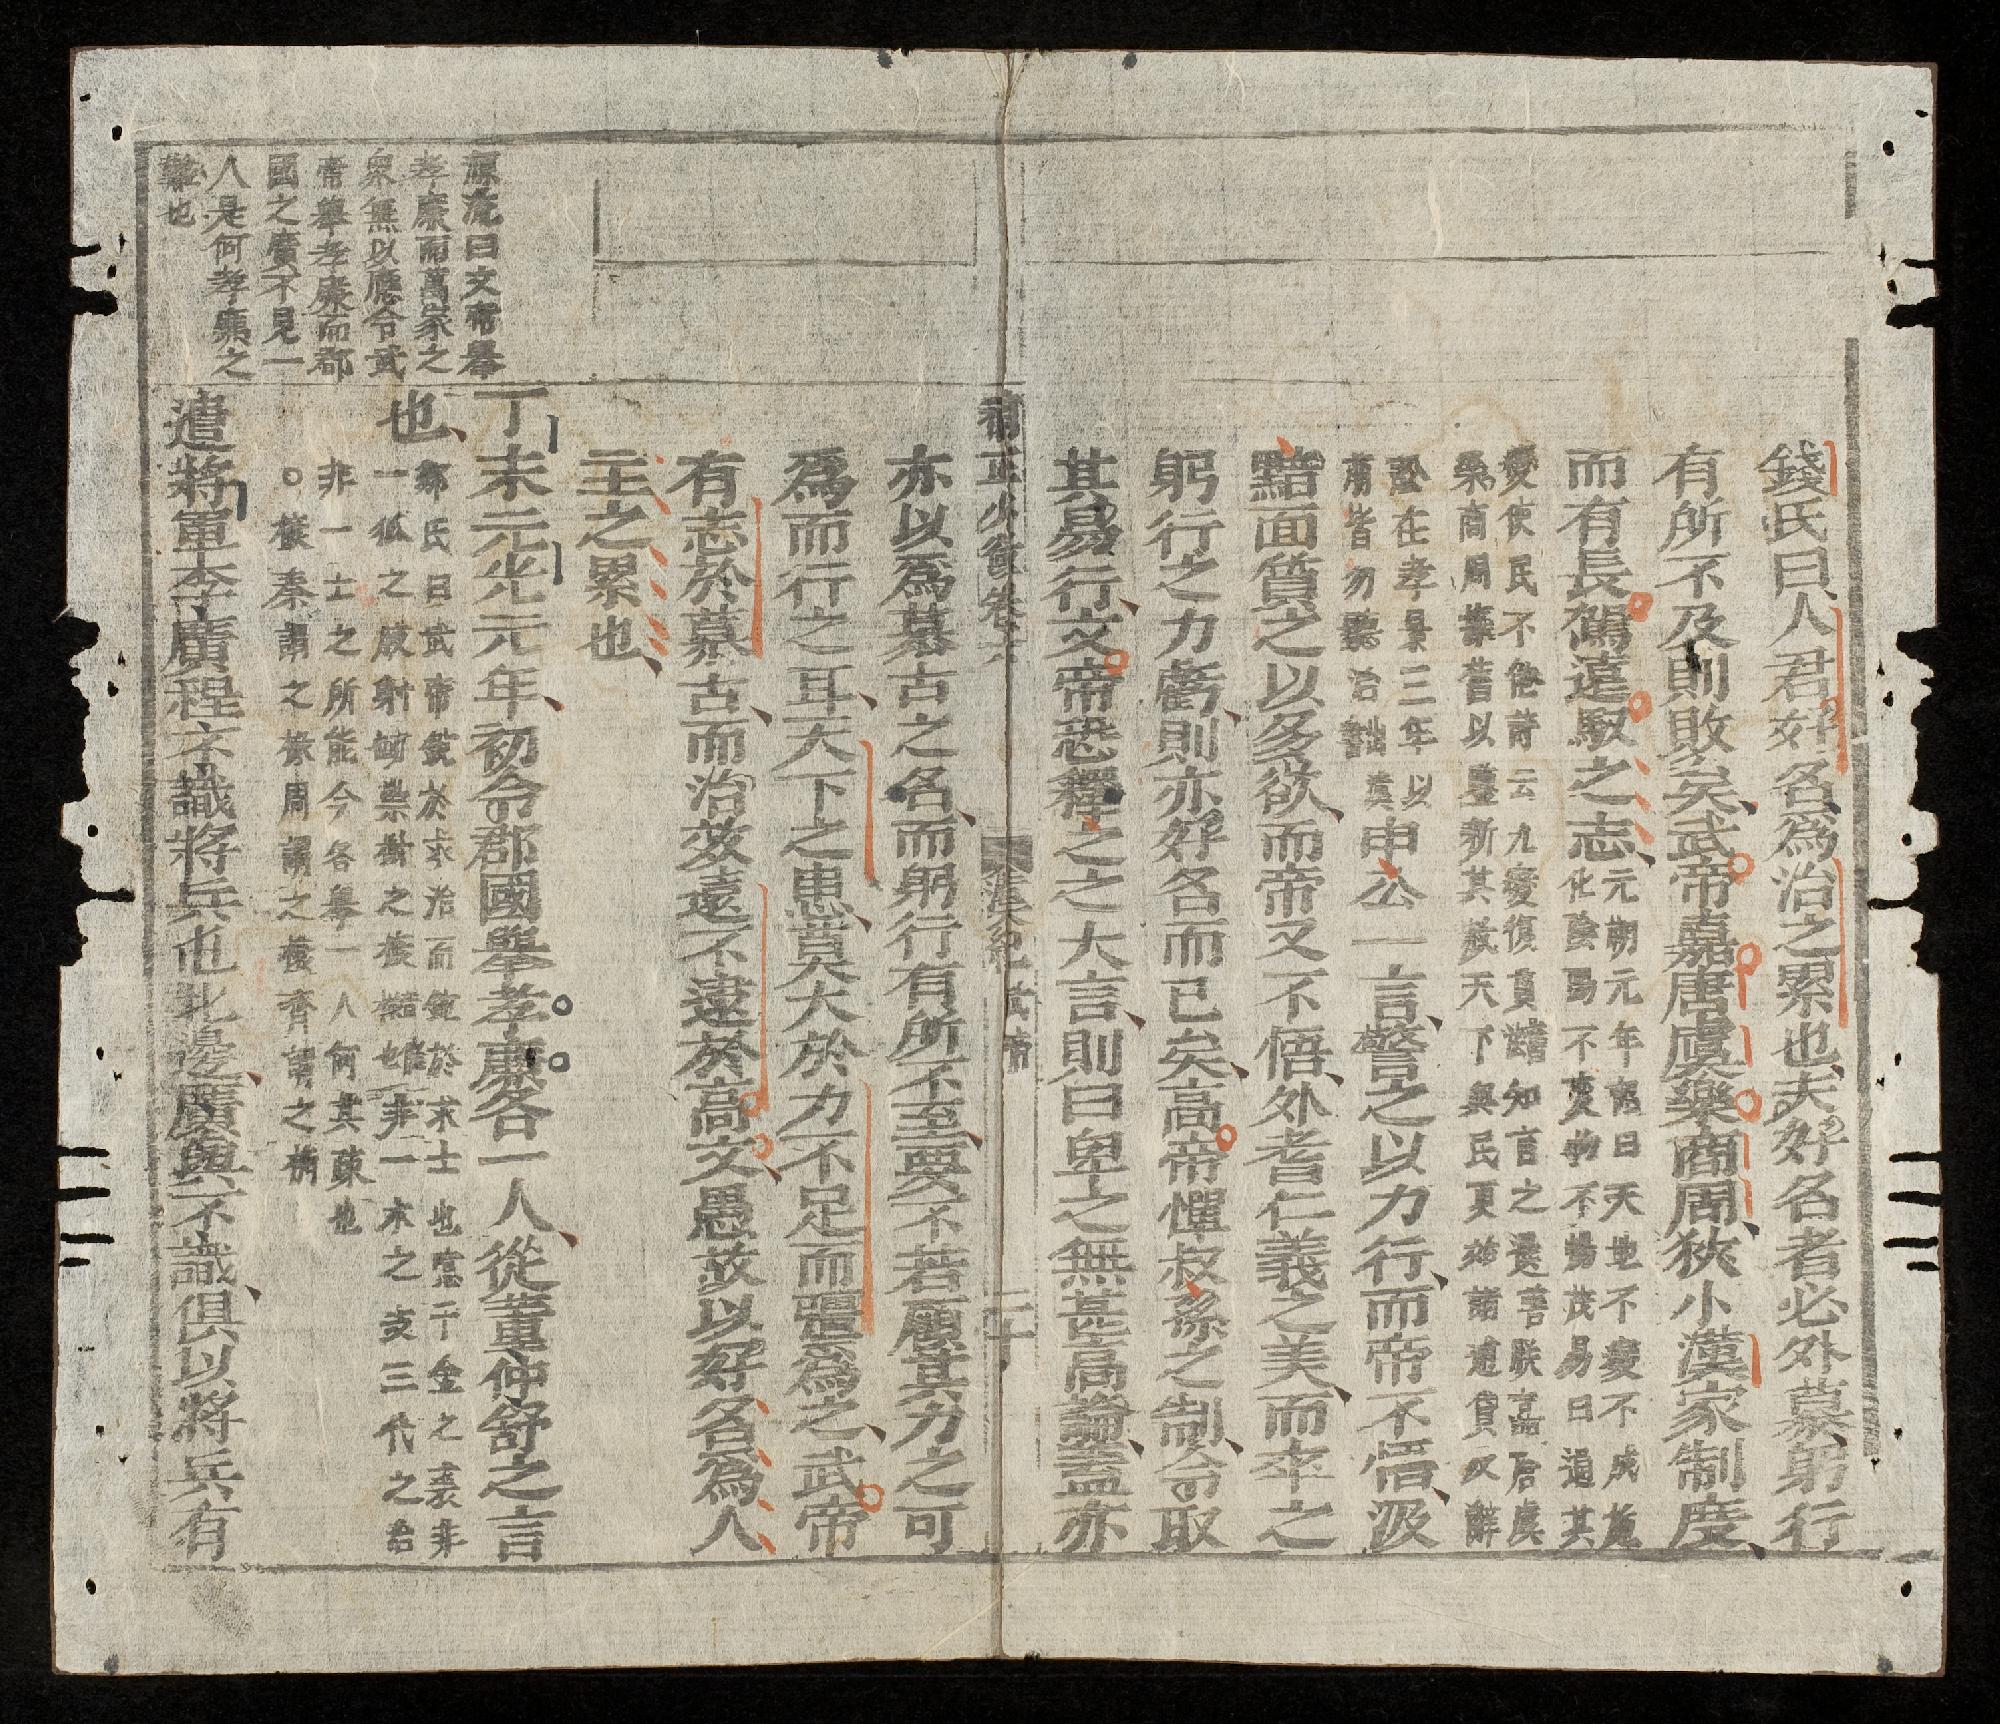 錢氏曰人君好名為治之累也夫好名者必外慕躬行
有所不及則敗矣武帝嘉唐虞樂商周狹小漢家制度
而有長駕遠馭之志元朔元年詔曰天地不變不成施
化陰陽不變物不暢茂易曰通其
變使民不倦詩云九變復貫知言之選善朕嘉唐虞
樂商周據舊以鑒新其赦天下與民更始諸逋貸以辭
訟在孝景三年以
前皆勿聽治
申公一言警之以力行而帝不悟汲
黯面質之以多欲而帝又不悟外者仁義之美而卒之
躬行之力虧則亦好名而已矣高帝憚叔孫之制令取
其易行文帝恐釋之之大言則曰卑之無甚高論蓋亦
補正少微卷之
漢紀 武帝
二十
亦以為慕古之名而躬行有所不至要不若顧其力之可
為而行之耳天下之患莫大於力不足而彊為之武帝
有志於慕古而治效遠不逮於高文愚故以好名為人
主之累也
源流曰文帝舉
孝廉而萬家之
衆無以應令武
帝舉孝廉而郡
國之廣不見一
人是何孝廉之
難也
丁未元光元年初令郡國舉孝廉各一人從董仲舒之言
也
鄭氏曰武帝銳於求治而銳於求士也嘗千金之裘非
一狐之腋射
之
非一木之支三代之治
非一士之所能今各舉一人何其疎也
遣將軍李廣程不識將兵屯北邊廣與不識俱以將兵有